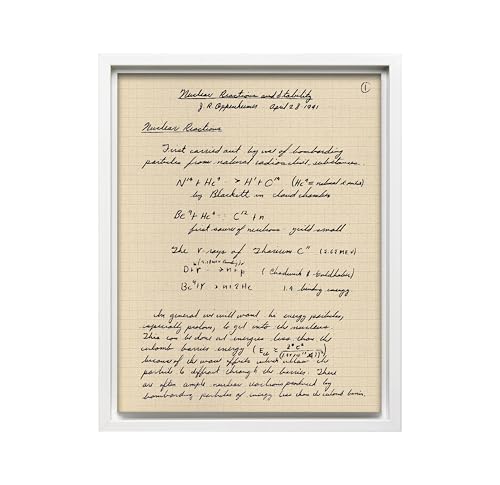 ①
Nuclear Reactions and Stability
J. R. Oppenheimer April 28 1941
Nuclear Reactions
First carried out by use of bombarding
particles from natural radioactive substances.
N¹⁴ + He⁴ → H¹ + O¹⁷ (He⁴ = natural α rays)
by Blackett in cloud chamber
Be⁹ + He⁴ C¹² + n
first source of neutrons - yield small
The γ-rays of Thorium C" (2.62 MEV)
D + γ → n + p (Chadwick & Goldhaber)
Be⁹ + γ → n + 2 He binding energy
In general we will want he energy particles,
especially protons, to get into the nucleus.
This can be done at energies less than the
coulomb barrier energy
because of the wave effects which allow the
particle to diffract through the barrier. There
are often ample nuclear reactions produced by
bombarding particles of energy less than the coulomb barrier.